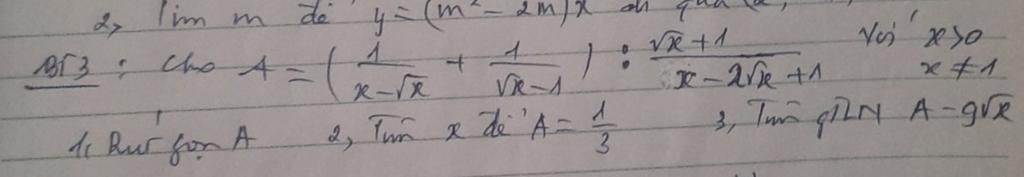 2, Tìm m để y = (m² - 2m)x đi qua (2,
BT3 : Cho A = ( 1/(x-√x) + 1/(√x-1) ) : (√x+1)/(x-2√x+1) Với x>0 x≠1
1, Rút gọn A 2, Tìm x để A = 1/3 3, Tìm gTLN A - 9√x